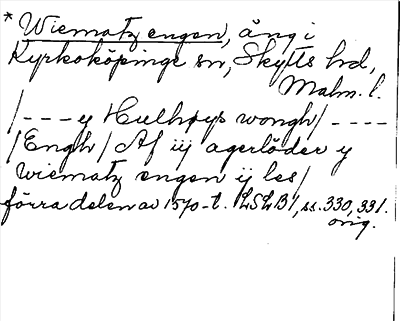 * Wiematz engen, äng i
Kyrkoköpinge sn, Skytts hrd,
Malm. l.
/--- y Hulhøys wongh/ ----
/Engh/ Af iij agerlöder y
Wiematz engen ij les/
förra delen av 1570-t. LSLB1, ss. 330, 331.
orig.